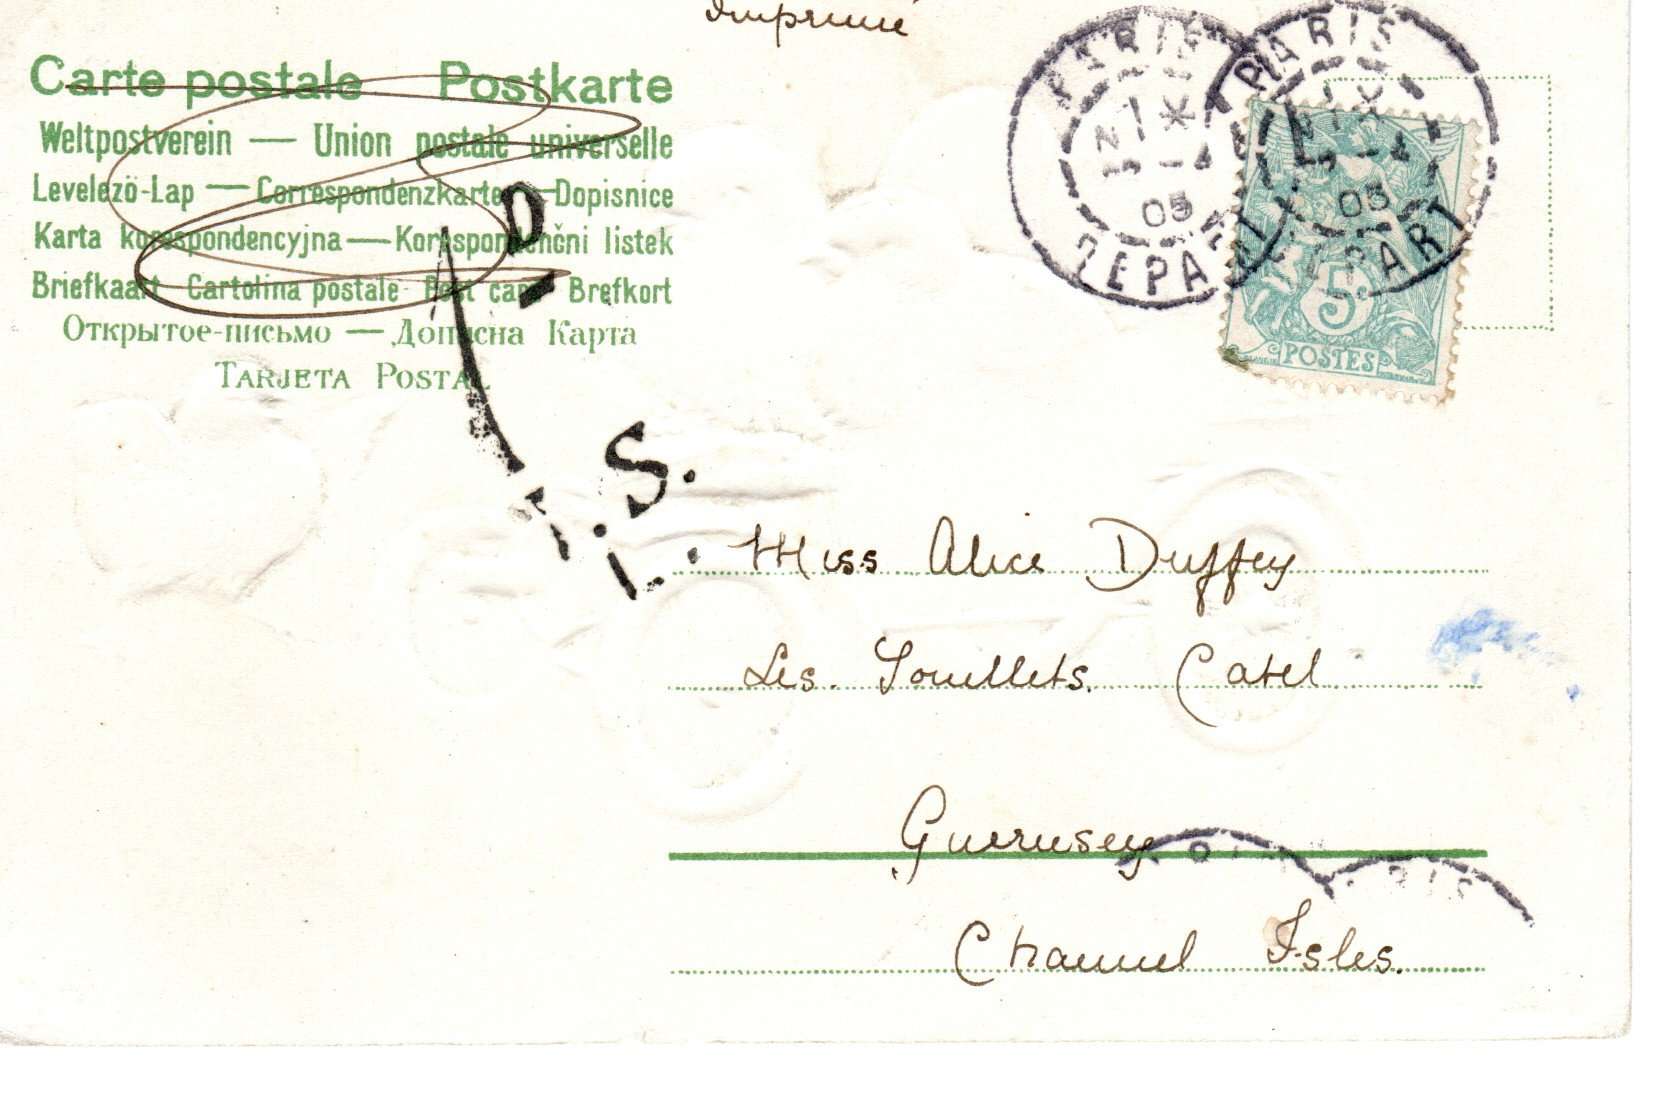 Imprimé
Carte postale Postkarte
Weltpostverein — Union postale universelle
Levelezö-Lap — Correspondenzkarte — Dopisnice
Karta korespondencyjna — Korespondenčni listek
Briefkaart Cartolina postale - Post card Brefkort
Открытое-письмо — Дописна Карта
TARJETA POSTAL
PARIS
05
DEPART
PARIS
05
DEPART
5c
POSTES
1D
T.S.
L.
Miss Alice Duffey
Les. Souillets. Catel
Guernsey
Channel Isles.
PARIS